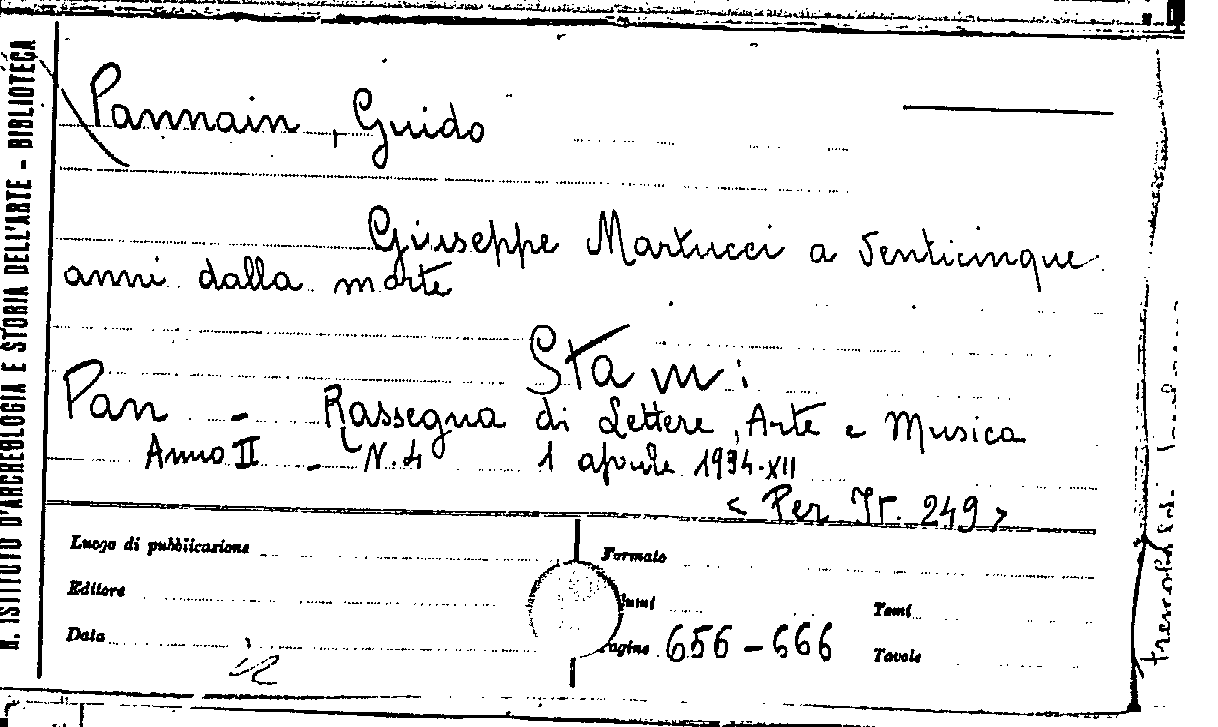 R. ISTITUTO D'ARCHEOLOGIA E STORIA DELL'ARTE - BIBLIOTECA
Pannain, Guido
Giuseppe Martucci a venticinque
anni dalla morte
Sta in:
Pan - Rassegna di Lettere, Arte e Musica
Anno II - N. 4 1 aprile 1934-XII
< Per It. 249 >
Luogo di pubblicazione
Formato
Editore
Tomi
Data
Pagine 656-666
Tavole